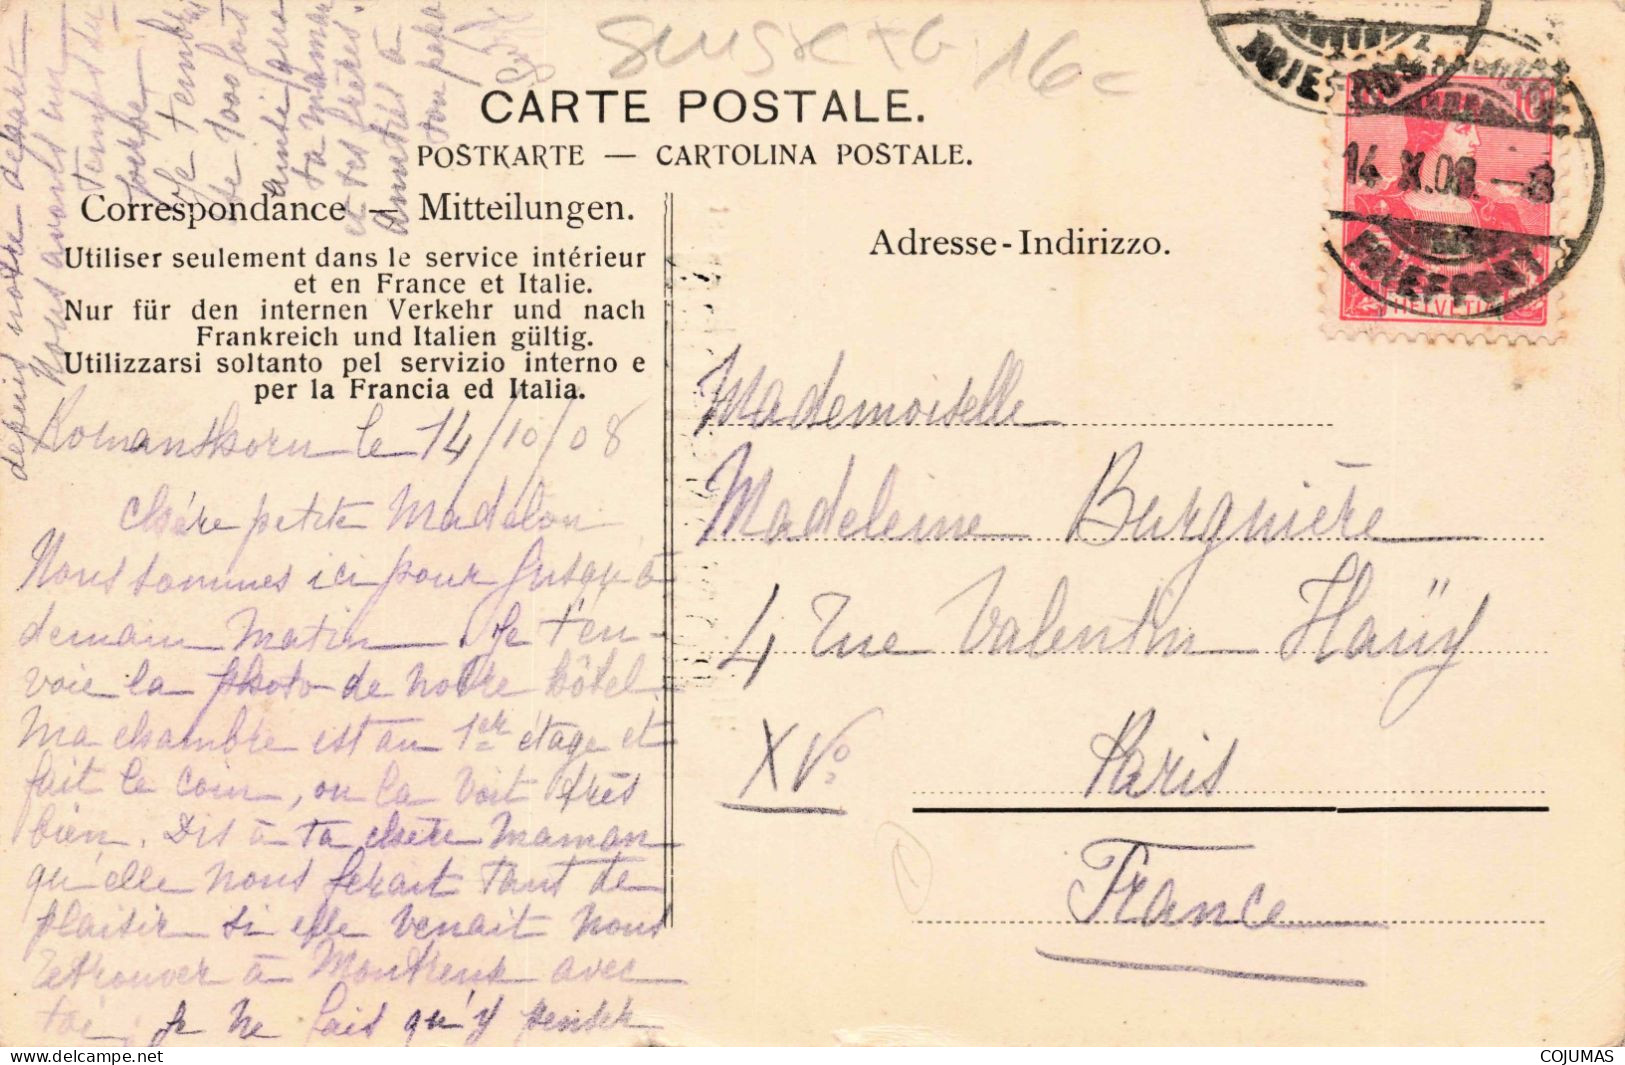 Suisse
16c
CARTE POSTALE.
POSTKARTE — CARTOLINA POSTALE.
Correspondance — Mitteilungen.
Utiliser seulement dans le service intérieur
et en France et Italie.
Nur für den internen Verkehr und nach
Frankreich und Italien gültig.
Utilizzarsi soltanto pel servizio interno e
per la Francia ed Italia.
Adresse-Indirizzo.
10
14.X.08.-8
BRIEFPOST
HELVETIA
Romanshorn le 14/10/08
Chère petite Madelon
Nous sommes ici pour jusqu'à
demain matin. Je t'en-
voie la photo de notre hôtel.
Ma chambre est au 1er étage et
fait le coin, on la voit très
bien. Dis à ta chère Maman
qu'elle nous ferait tant de
plaisir si elle venait nous
retrouver à Montreux avec
toi, je ne fais qu'y penser
depuis notre départ
Nous avons un
temps
superbe
Je t'embrasse
de 1000
ainsi que
ta maman
et tes frères.
Amitiés à
ton papa
Mademoiselle
Madeleine Burguière
4 rue Valentin Haüy
XVo
Paris
France
COJUMAS